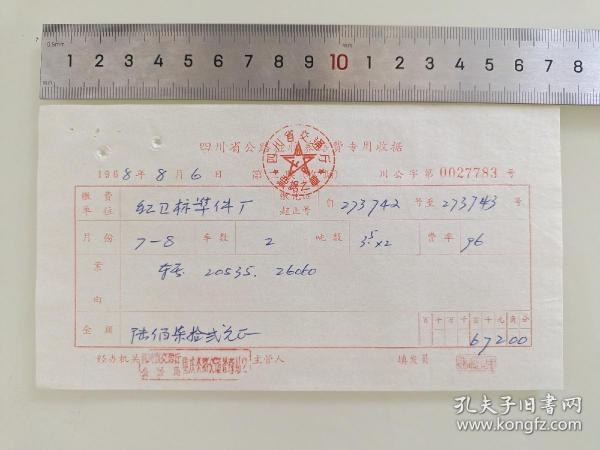 0.5mm mm mm
1 2 3 4 5 6 7 8 9 10 1 2 3 4 5 6 7 8
四川省公路 费专用收据
四川省交通厅
1968年8月6日 第 川公字第0027783号
缴费单位 红卫标准件厂 起止号 自273742号至273743号
月份 7-8 车数 2 吨数 3.5×2 费率 96
案由 车号 20535. 26060
百十万千百十元角分
金额 陆佰柒拾贰元正 67200
经办机关 主管人 填发员
孔夫子旧书网
www.kongfz.com